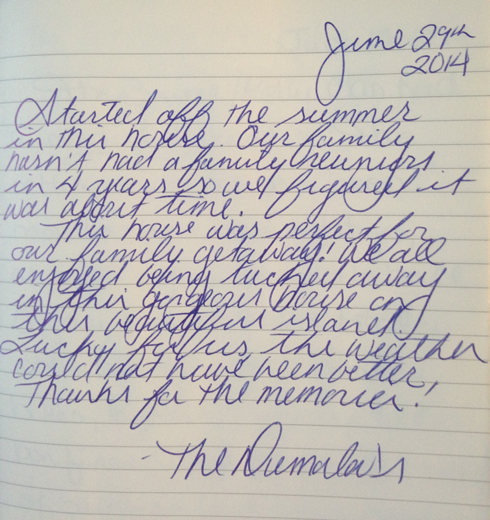 June 29th
2014
Started off the summer
in this house. Our family
hasn't had a family reunion
in 4 years so we figured it
was about time.
This house was perfect for
our family getaway! We all
enjoyed being tucked away
in this gorgeous house on
this beautiful island.
Lucky for us the weather
could not have been better,
Thanks for the memories!
-The